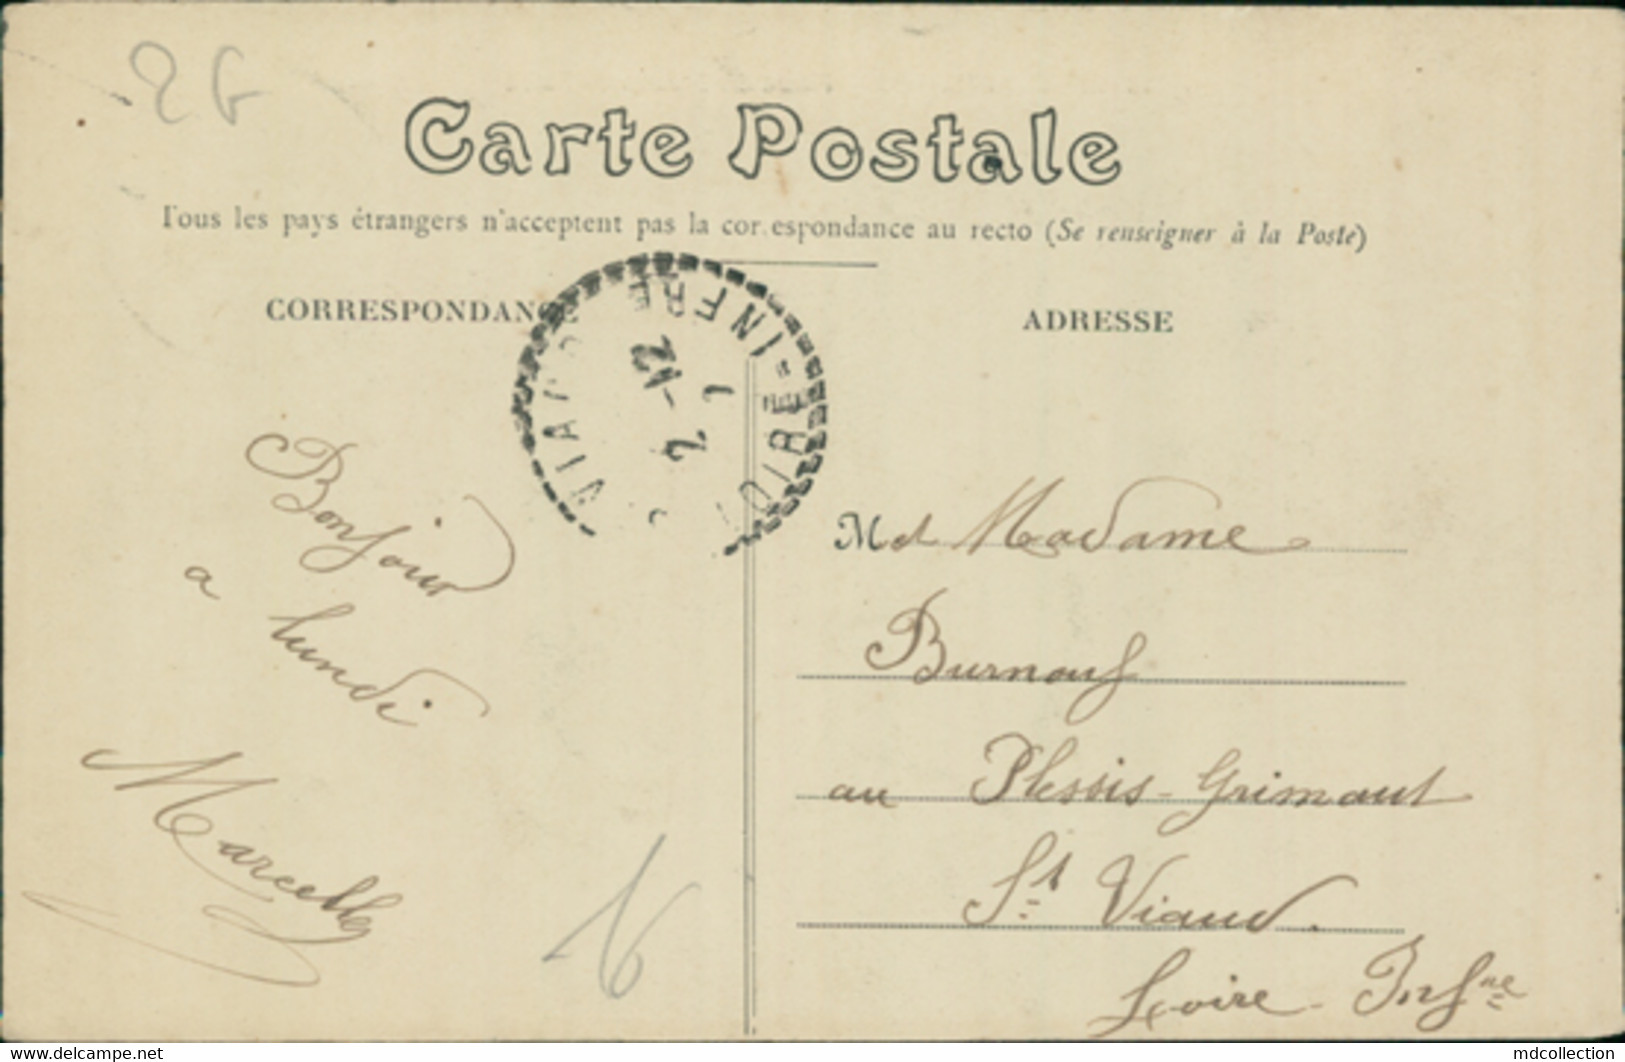 26
Carte Postale
Tous les pays étrangers n'acceptent pas la correspondance au recto (Se renseigner à la Poste)
CORRESPONDANCE
ADRESSE
12
2
LOIRE-INFRE
Bonjour
a lundi
Marcelle
16
Md Madame
Burnouf
au Plessis-Grimaut
St Viaud.
Loire-Infre
www.delcampe.net
mdcollection